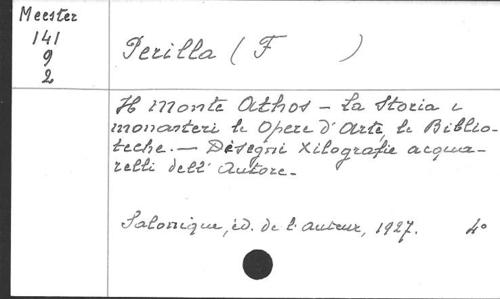 Meester
141
9
2
Perilla (F )
Il Monte Athos - La Storia e
monasteri le Opere d'Arte, le Biblio-
teche. - Disegni Xilografie acqua-
relli dell' Autore.
Salonique, éd. de l'auteur, 1927. 4°